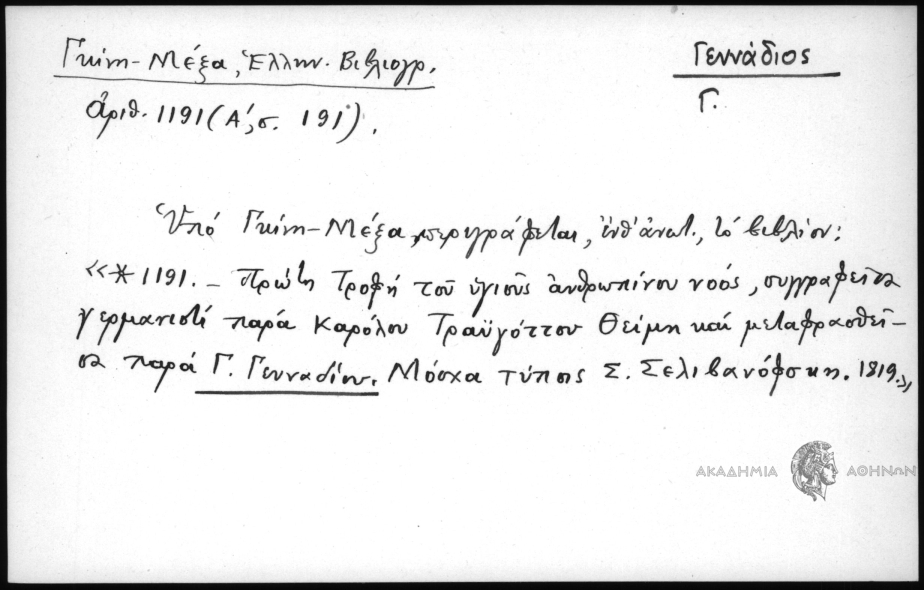 Γκίνη-Μέξα, Ἑλλην. Βιβλιογρ.
ἀριθ. 1191 (Α΄, σ. 191).
Γεννάδιος
Γ.
Ὑπό Γκίνη-Μέξα περιγράφεται, ἐνθ' ἀνωτ., τό βιβλίον:
«* 1191. - Πρώτη Τροφή τοῦ ὑγιοῦς ἀνθρωπίνου νοός, συγγραφεῖσα
γερμανιστί παρά Καρόλου Τραϋγόττου Θείμη καί μεταφρασθεῖ-
σα παρά Γ. Γενναδίου. Μόσχα τύποις Σ. Σελιβανόφσκη. 1819.»
ΑΚΑΔΗΜΙΑ ΑΘΗΝΩΝ